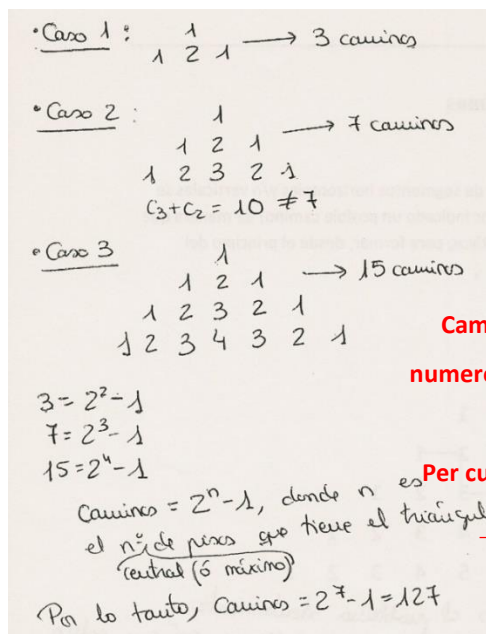 • Caso 1 : 1
1 2 1 → 3 caminos
• Caso 2 : 1
1 2 1 → 7 caminos
1 2 3 2 1
C₃+C₂ = 10 ≠ 7
• Caso 3 1
1 2 1 → 15 caminos
1 2 3 2 1
1 2 3 4 3 2 1
Cam
numer
3 = 2² - 1
7 = 2³ - 1
15 = 2⁴ - 1
Per cu
Caminos = 2ⁿ - 1, donde n es
el nº de pisos que tiene el triángul
(central (ó máximo)
Por lo tanto, Caminos = 2⁷ - 1 = 127